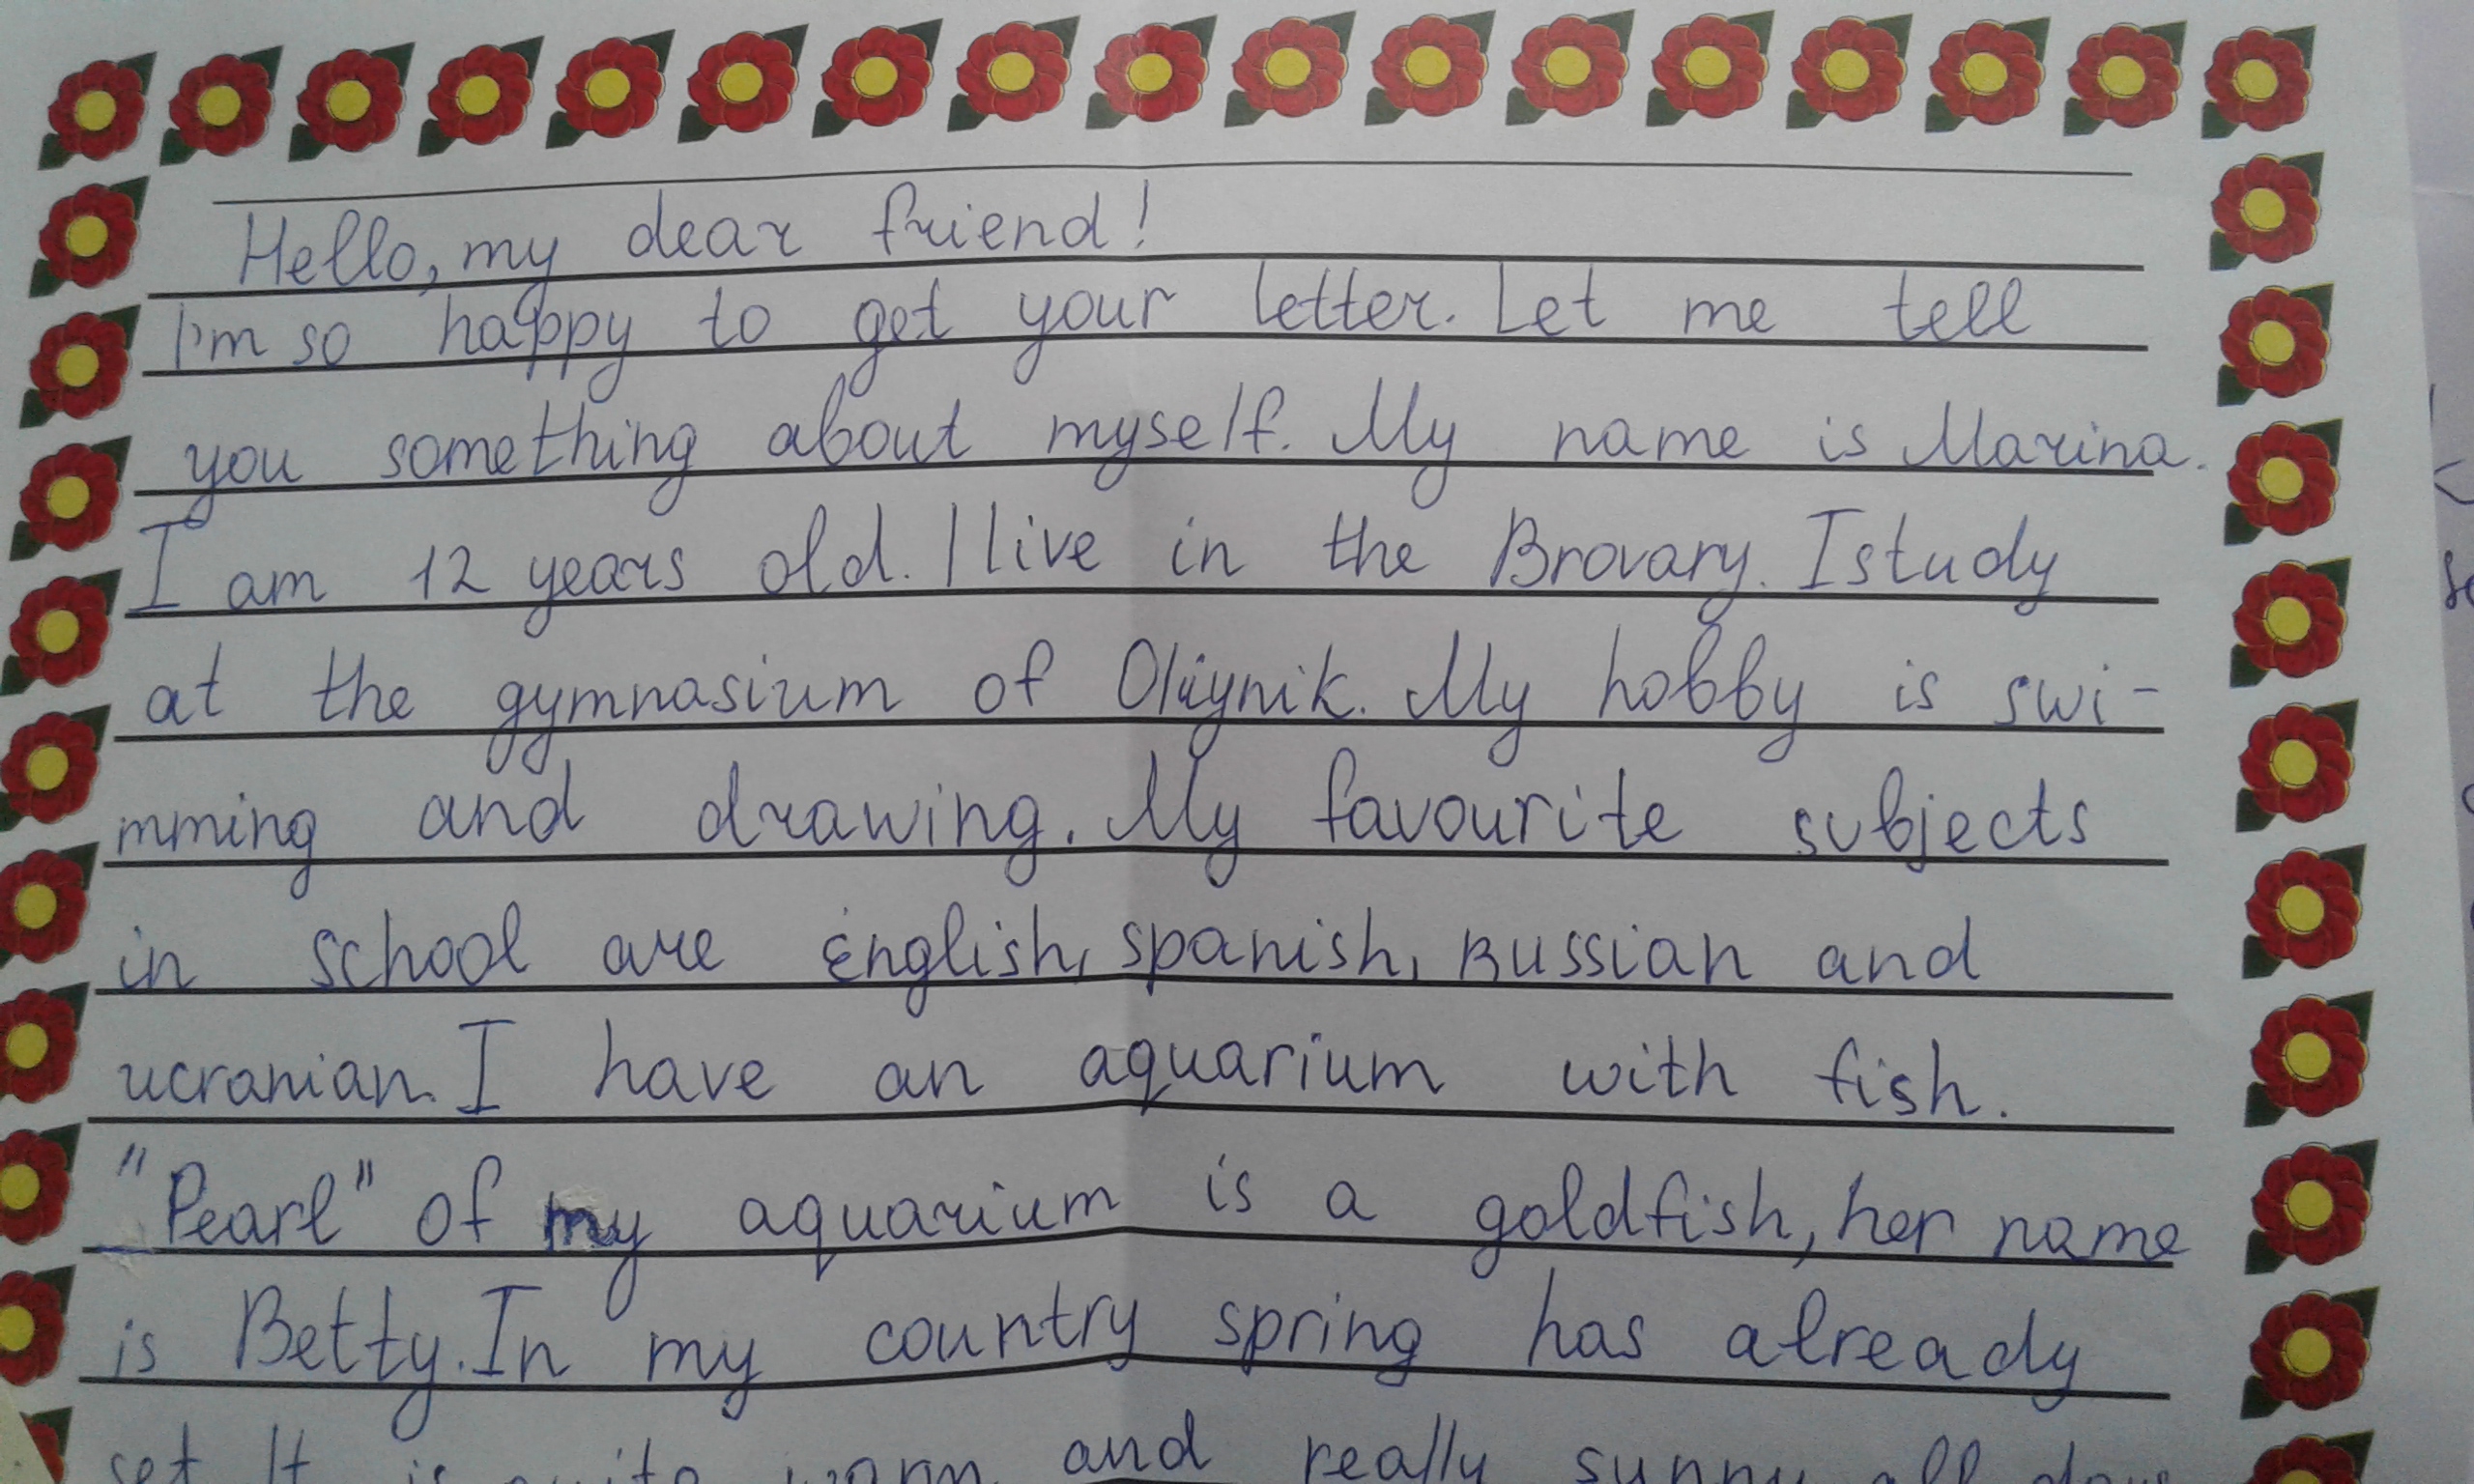 Hello, my dear friend!
I'm so happy to get your letter. Let me tell
you something about myself. My name is Marina.
I am 12 years old. I live in the Brovary. I study
at the gymnasium of Oliynik. My hobby is swi-
mming and drawing. My favourite subjects
in school are English, spanish, Russian and
ucranian. I have an aquarium with fish.
"Pearl" of my aquarium is a goldfish, her name
is Betty. In my country spring has already
set. It is quite warm and really sunny all days